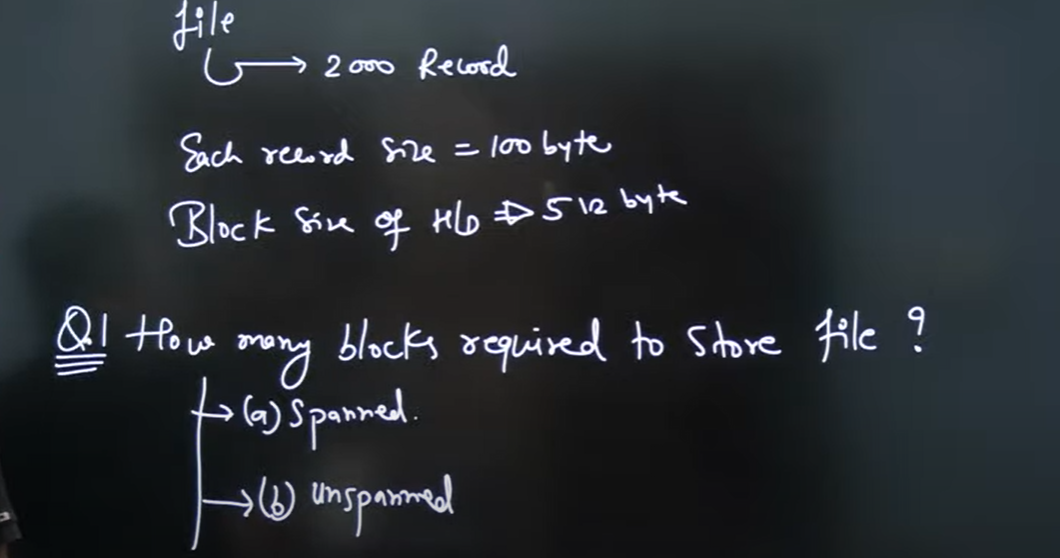 file
→ 2000 Record
Each record size = 100 byte
Block size of H/D ⇒ 512 byte
Q.1 How many blocks required to store file ?
→ (a) Spanned.
→ (b) Unspanned